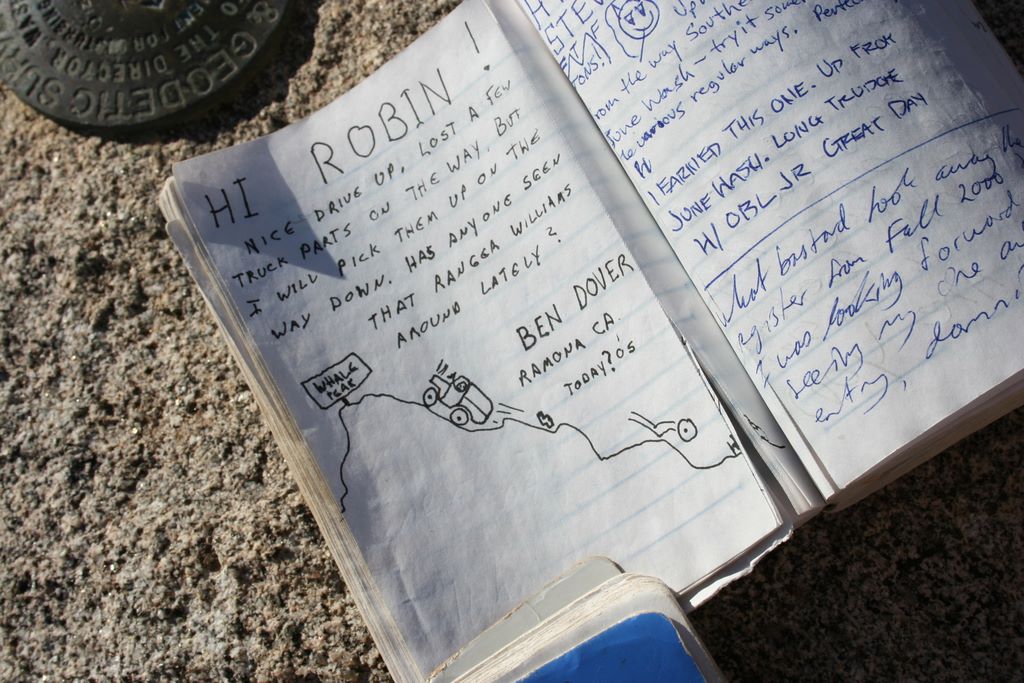 GEODETIC SU
THE DIRECTOR
FOR
HI ROBIN !
NICE DRIVE UP, LOST A FEW
TRUCK PARTS ON THE WAY, BUT
I WILL PICK THEM UP ON THE
WAY DOWN. HAS ANYONE SEEN
THAT RANGER WILLIAMS
AROUND LATELY?
BEN DOVER
RAMONA CA.
TODAY?05
WHALE
PEAK
H
STEV
up
from the way Southe
June Wash - try it some
various regular ways.
Perfect
LEARNED THIS ONE. UP FROM
JUNE WASH. LONG TRUDGE
W/ OBL JR GREAT DAY
What bastard took away the
register from Fall 2000
I was looking forward
seeing my one an
entry, damn